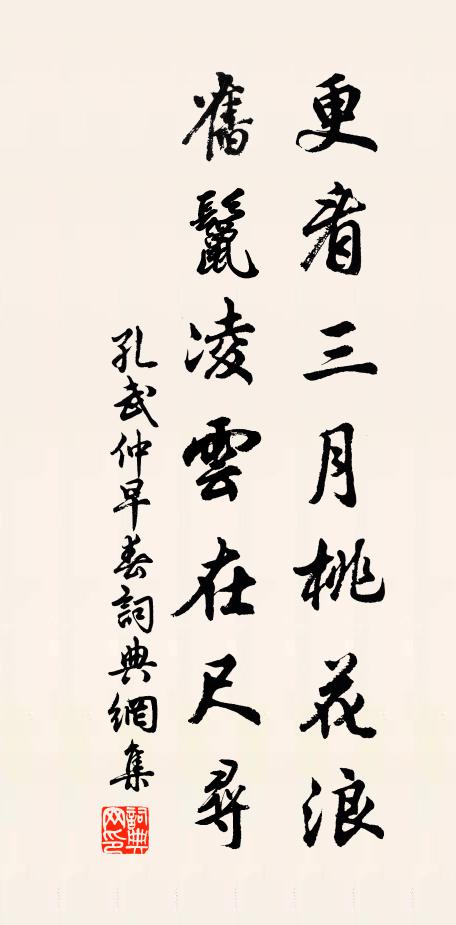 更看三月桃花浪
舊鬣凌雲在尺尋
孔武仲早春詞典網集
詞典網印